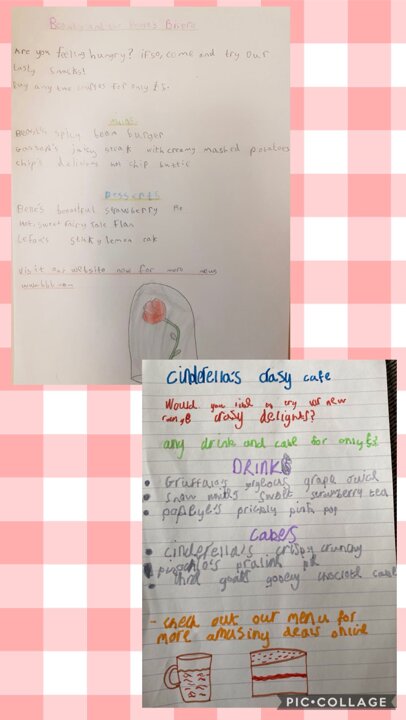 Beauty and the Bistro
Are you feeling hungry? if so, come and try our
tasty snacks!
Buy any two courses for only £5.
mains
Beast's spicy bean burger
Gaston's juicy steak with creamy mashed potatoes
chip's delicious hot chip
Desserts
Belle's beautiful strawberry Pie
Hot, sweet fairy tale Flan
Lefou's sticky lemon cak
visit our website now for more news
cinderella's crasy cafe
Would you like to try our new
range crasy delights?
any drink and cake for only £3
DRINKS
• Gruffalo's gorgeous graph
• Snow white's sweet strawberry tea
• popeye's prickly pink pop
Cakes
• cinderella's crispy crunchy
pinochio's pralink
• goats gooey choclote cake
- check out our menu for
more amusing deals online
PIC•COLLAGE